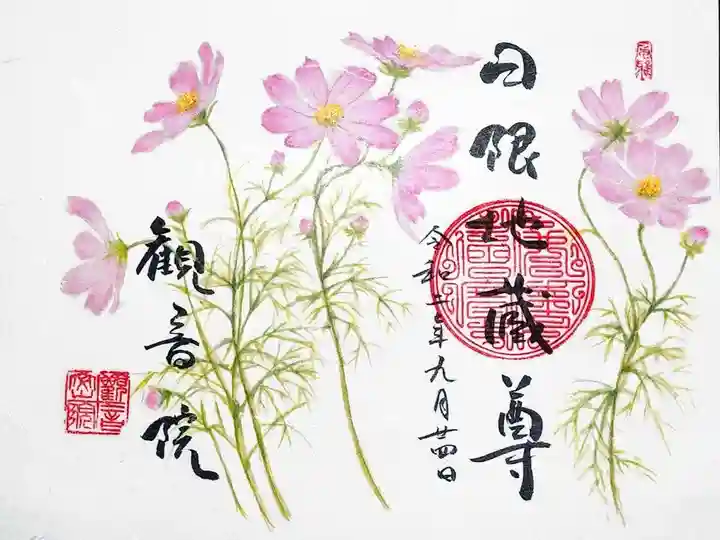 日限地蔵尊
令和二年九月廿四日
観音院
觀音院